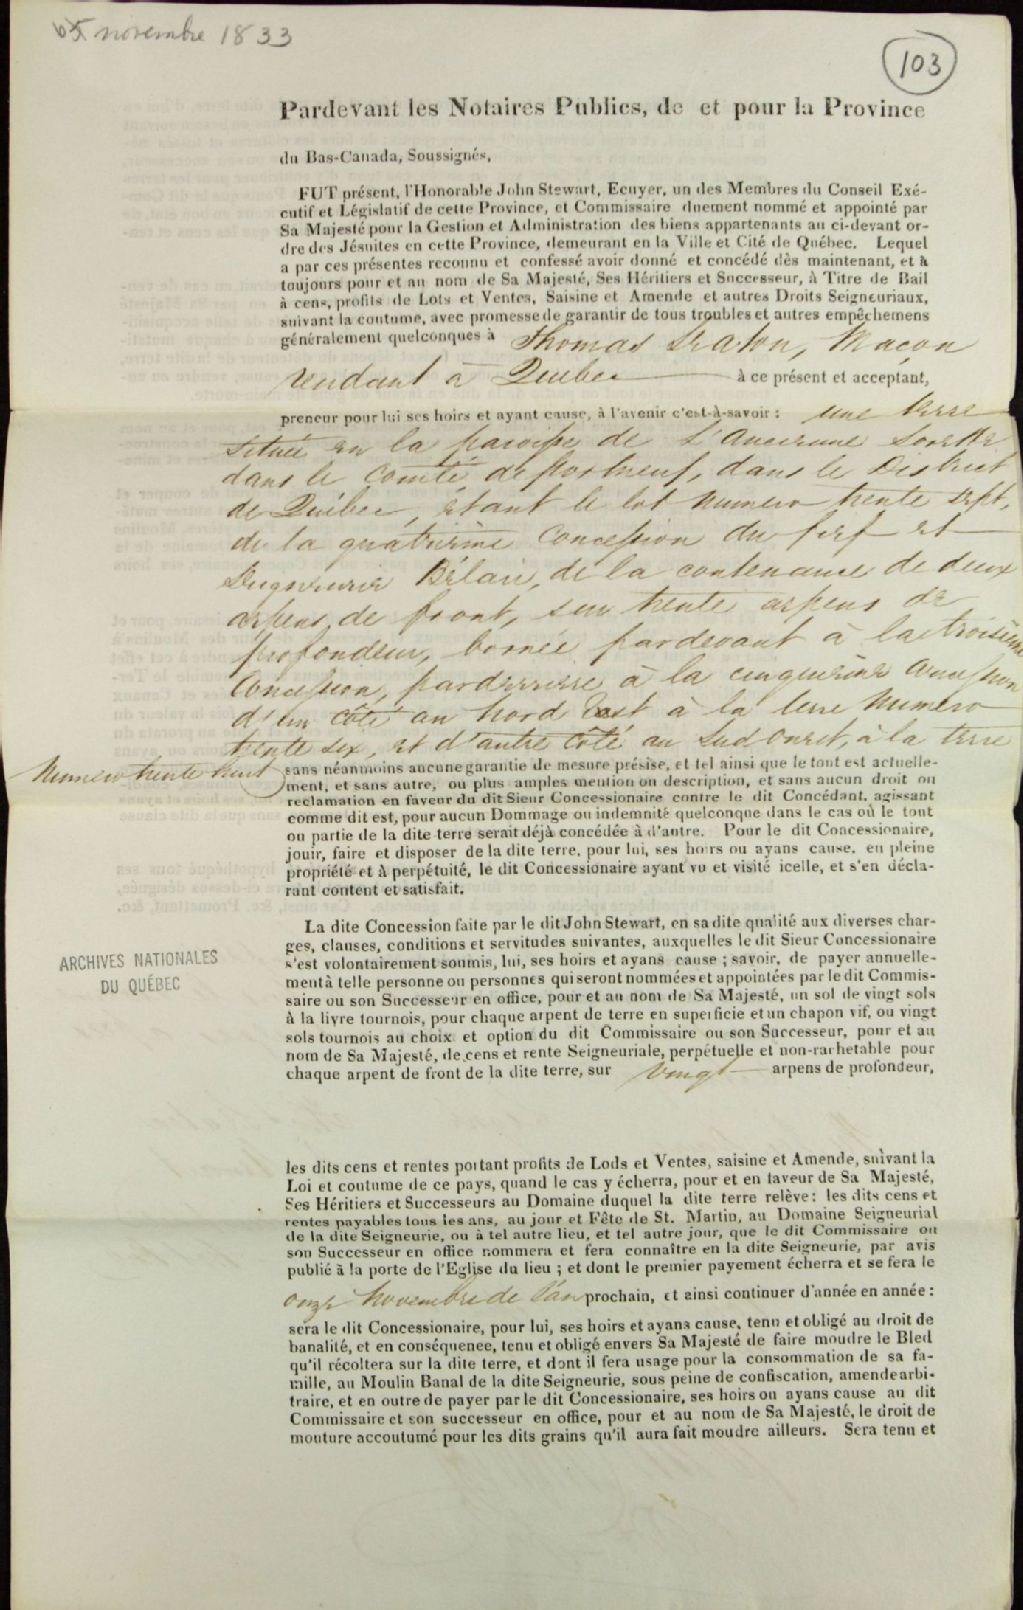 novembre 1833
103
Pardevant les Notaires Publics, de et pour la Province
du Bas-Canada, Soussignés,
FUT présent, l'Honorable John Stewart, Ecuyer, un des Membres du Conseil Exé-
cutif et Législatif de cette Province, et Commissaire duement nommé et appointé par
Sa Majesté pour la Gestion et Administration des biens appartenants au ci-devant or-
dre des Jésuites en cette Province, demeurant en la Ville et Cité de Québec. Lequel
a par ces présentes reconnu et confessé avoir donné et concédé dès maintenant, et à
toujours pour et au nom de Sa Majesté, Ses Héritiers et Successeur, à Titre de Bail
à cens, profits de Lots et Ventes, Saisine et Amende et autres Droits Seigneuriaux,
suivant la coutume, avec promesse de garantir de tous troubles et autres empêchemens
généralement quelconques à Thomas Maçon
à Québec à ce présent et acceptant,
preneur pour lui ses hoirs et ayant cause, à l'avenir c'est-à-savoir : une terre
située en la paroisse de L'Ancienne Lorette
dans le Comté de Portneuf, dans le District
de Québec, étant le lot Numero trente sept,
de la quatrième Concession du fief et
Seigneurie Bélair, de la contenance de deux
arpens de front, sur trente arpens de
profondeur, bornée pardevant à la troisième
Concession, parderrière à la cinquième Concession
d'un côté au Nord Est à la terre Numero
trente six, et d'autre côté au Sud Ouest, à la terre
Numero trente huit sans néanmoins aucune garantie de mesure présise, et tel ainsi que le tout est actuelle-
ment, et sans autre, ou plus amples mention ou description, et sans aucun droit ou
reclamation en faveur du dit Sieur Concessionaire contre le dit Concédant, agissant
comme dit est, pour aucun Dommage ou indemnité quelconque dans le cas où le tout
ou partie de la dite terre serait déjà concédée à d'autre. Pour le dit Concessionaire,
jouir, faire et disposer de la dite terre, pour lui, ses hoirs ou ayans cause, en pleine
propriété et à perpétuité, le dit Concessionaire ayant vu et visité icelle, et s'en décla-
rant content et satisfait.
La dite Concession faite par le dit John Stewart, en sa dite qualité aux diverses char-
ges, clauses, conditions et servitudes suivantes, auxquelles le dit Sieur Concessionaire
s'est volontairement soumis, lui, ses hoirs et ayans cause ; savoir, de payer annuelle-
ment à telle personne ou personnes qui seront nommées et appointées par le dit Commis-
saire ou son Successeur en office, pour et au nom de Sa Majesté, un sol de vingt sols
à la livre tournois, pour chaque arpent de terre en superficie et un chapon vif, ou vingt
sols tournois au choix et option du dit Commissaire ou son Successeur, pour et au
nom de Sa Majesté, de cens et rente Seigneuriale, perpétuelle et non-rachetable pour
chaque arpent de front de la dite terre, sur vingt arpens de profondeur,
ARCHIVES NATIONALES
DU QUÉBEC
les dits cens et rentes portant profits de Lods et Ventes, saisine et Amende, suivant la
Loi et coutume de ce pays, quand le cas y écherra, pour et en faveur de Sa Majesté,
Ses Héritiers et Successeurs au Domaine duquel la dite terre relève : les dits cens et
rentes payables tous les ans, au jour et Fête de St. Martin, au Domaine Seigneurial
de la dite Seigneurie, ou à tel autre lieu, et tel autre jour, que le dit Commissaire ou
son Successeur en office nommera et fera connaître en la dite Seigneurie, par avis
publié à la porte de l'Eglise du lieu ; et dont le premier payement écherra et se fera le
onze Novembre de l'an prochain, et ainsi continuer d'année en année :
sera le dit Concessionaire, pour lui, ses hoirs et ayans cause, tenu et obligé au droit de
banalité, et en conséquence, tenu et obligé envers Sa Majesté de faire moudre le Bled
qu'il récoltera sur la dite terre, et dont il fera usage pour la consommation de sa fa-
mille, au Moulin Banal de la dite Seigneurie, sous peine de confiscation, amende arbi-
traire, et en outre de payer par le dit Concessionaire, ses hoirs ou ayans cause au dit
Commissaire et son successeur en office, pour et au nom de Sa Majesté, le droit de
mouture accoutumé pour les dits grains qu'il aura fait moudre ailleurs. Sera tenu et